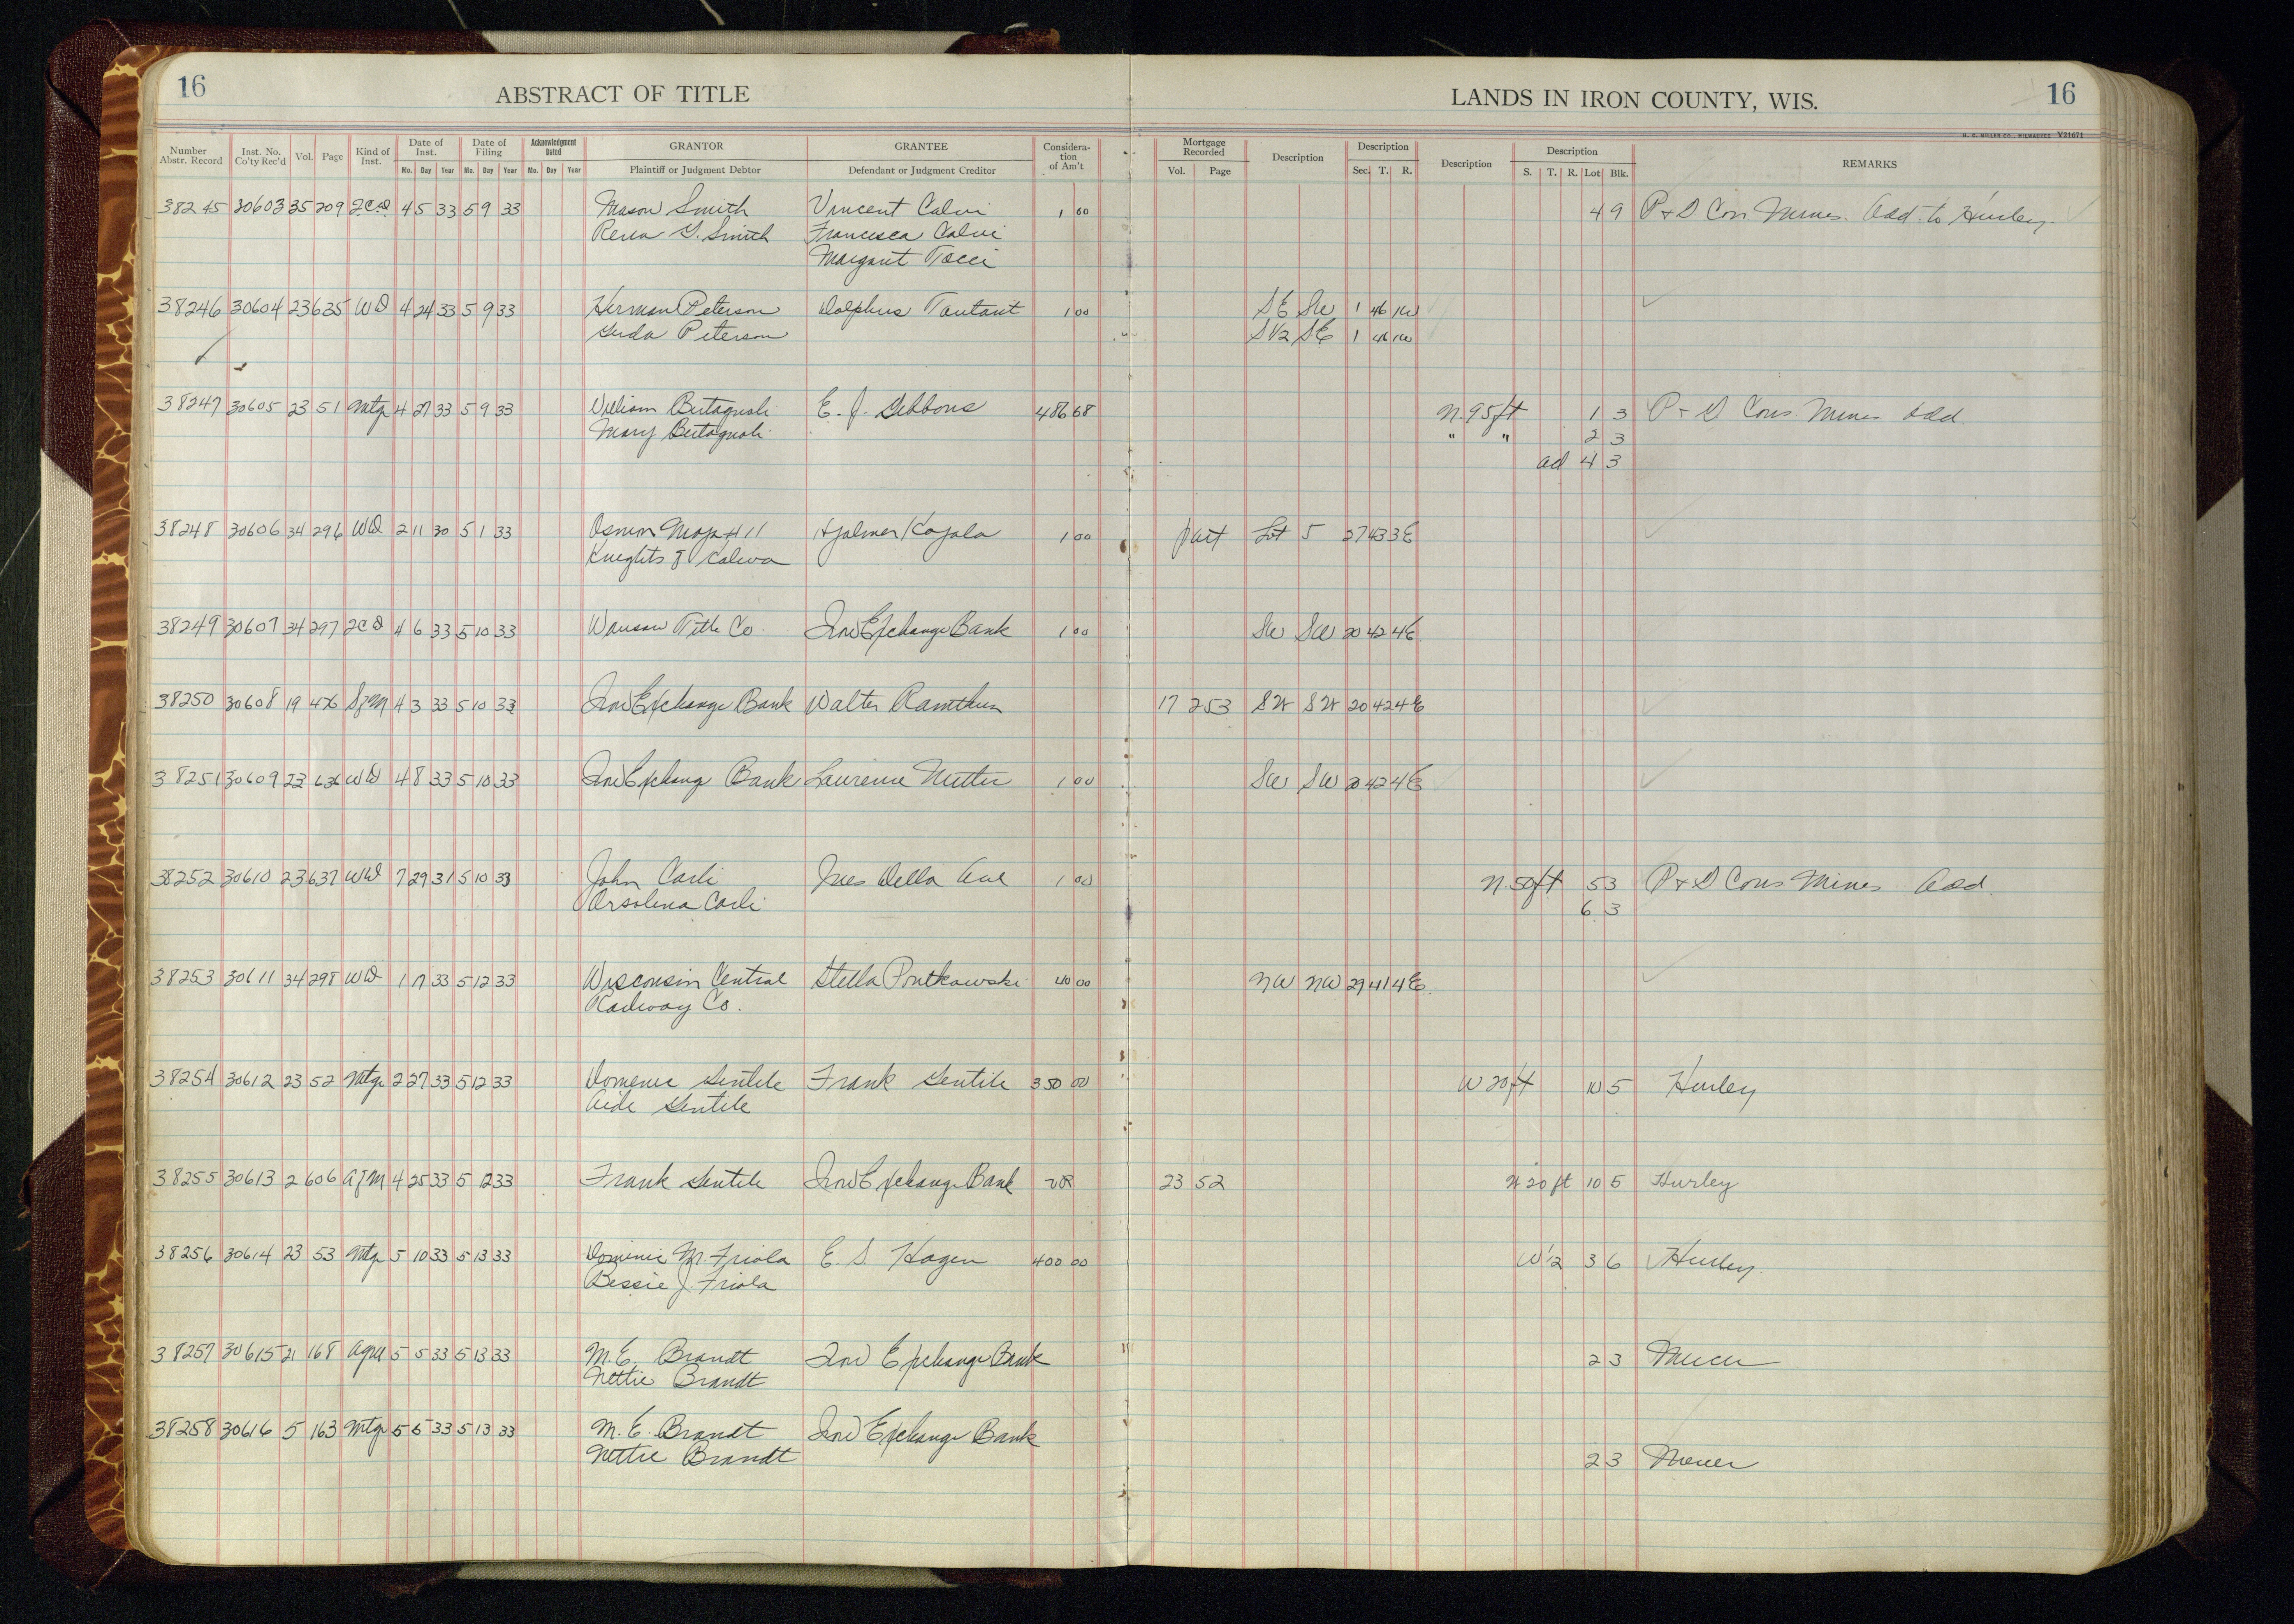 16
ABSTRACT OF TITLE
LANDS IN IRON COUNTY, WIS.
16
H. C. MILLER CO., MILWAUKEE Y21671
Number Abstr. Record Inst. No. Co'ty Rec'd Vol. Page Kind of Inst. Date of Inst. Mo. Day Year Date of Filing Mo. Day Year Acknowledgment Dated Mo. Day Year GRANTOR Plaintiff or Judgment Debtor GRANTEE Defendant or Judgment Creditor Considera-tion of Am't Mortgage Recorded Vol. Page Description Description Sec. T. R. Description Description S. T. R. Lot Blk. REMARKS
38245 30603 35 209 4 5 33 5 9 33 Mason Smith Vincent Calvi 1 00 4 9 P + D Con Mines Add. to Hurley
Smith Francesca Calvi
Margaret Tocci
38246 30604 23 635 WD 4 24 33 5 9 33 Herman Peterson Dolphus Tautant 1 00 SE SW 1 46 1W
Peterson S1/2 SE 1 46 1W
38247 30605 23 51 Mtg 4 27 33 5 9 33 William Bertagnoli E. J. Gibbons 486 68 N. 95 ft 1 3 P + D Cons Mines Add
Mary Bertagnoli " " 2 3
4 3
38248 30606 34 296 WD 2 11 30 5 1 33 # 11 Hjalmer Kojola 1 00 part Lot 5 27 43 3E
Knights of Kaleva
38249 30607 34 297 4 6 33 5 10 33 Wausau Title Co. Iron Exchange Bank 1 00 SW SW 20 42 4E
38250 30608 19 SfM 4 3 33 5 10 33 Iron Exchange Bank Walter Ramthun 17 253 SW SW 20 42 4E
38251 30609 23 636 WD 4 8 33 5 10 33 Iron Exchang Bank Laurence 1 00 SW SW 20 42 4E
38252 30610 23 637 WD 7 29 31 5 10 33 John Carli Ines Della 1 00 N. 50 ft 5 3 P + D Cons Mines Add.
Orsolina Carli 6 3
38253 30611 34 298 WD 1 17 33 5 12 33 Wisconsin Central Stella Prutkowski 40 00 NW NW 29 41 4E
Railway Co.
38254 30612 23 52 Mtg 2 27 33 5 12 33 Domenic Gentile Frank Gentile 350 00 W 20 ft 10 5 Hurley
Aide Gentile
38255 30613 2 606 AfM 4 25 33 5 12 33 Frank Gentile Iron Exchange Bank 23 52 W 20 ft 10 5 Hurley
38256 30614 23 53 Mtg 5 10 33 5 13 33 Dominic M. Friola E. S. Hagen 400 00 W 1/2 3 6 Hurley
Bessie J. Friola
38257 30615 21 168 Agre 5 5 33 5 13 33 M. E. Brandt Iron Exchange Bank 2 3 Mercer
Nettie Brandt
38258 30616 5 163 Mtg 5 5 33 5 13 33 M. E. Brandt Iron Exchange Bank
Nettie Brandt 2 3 Mercer